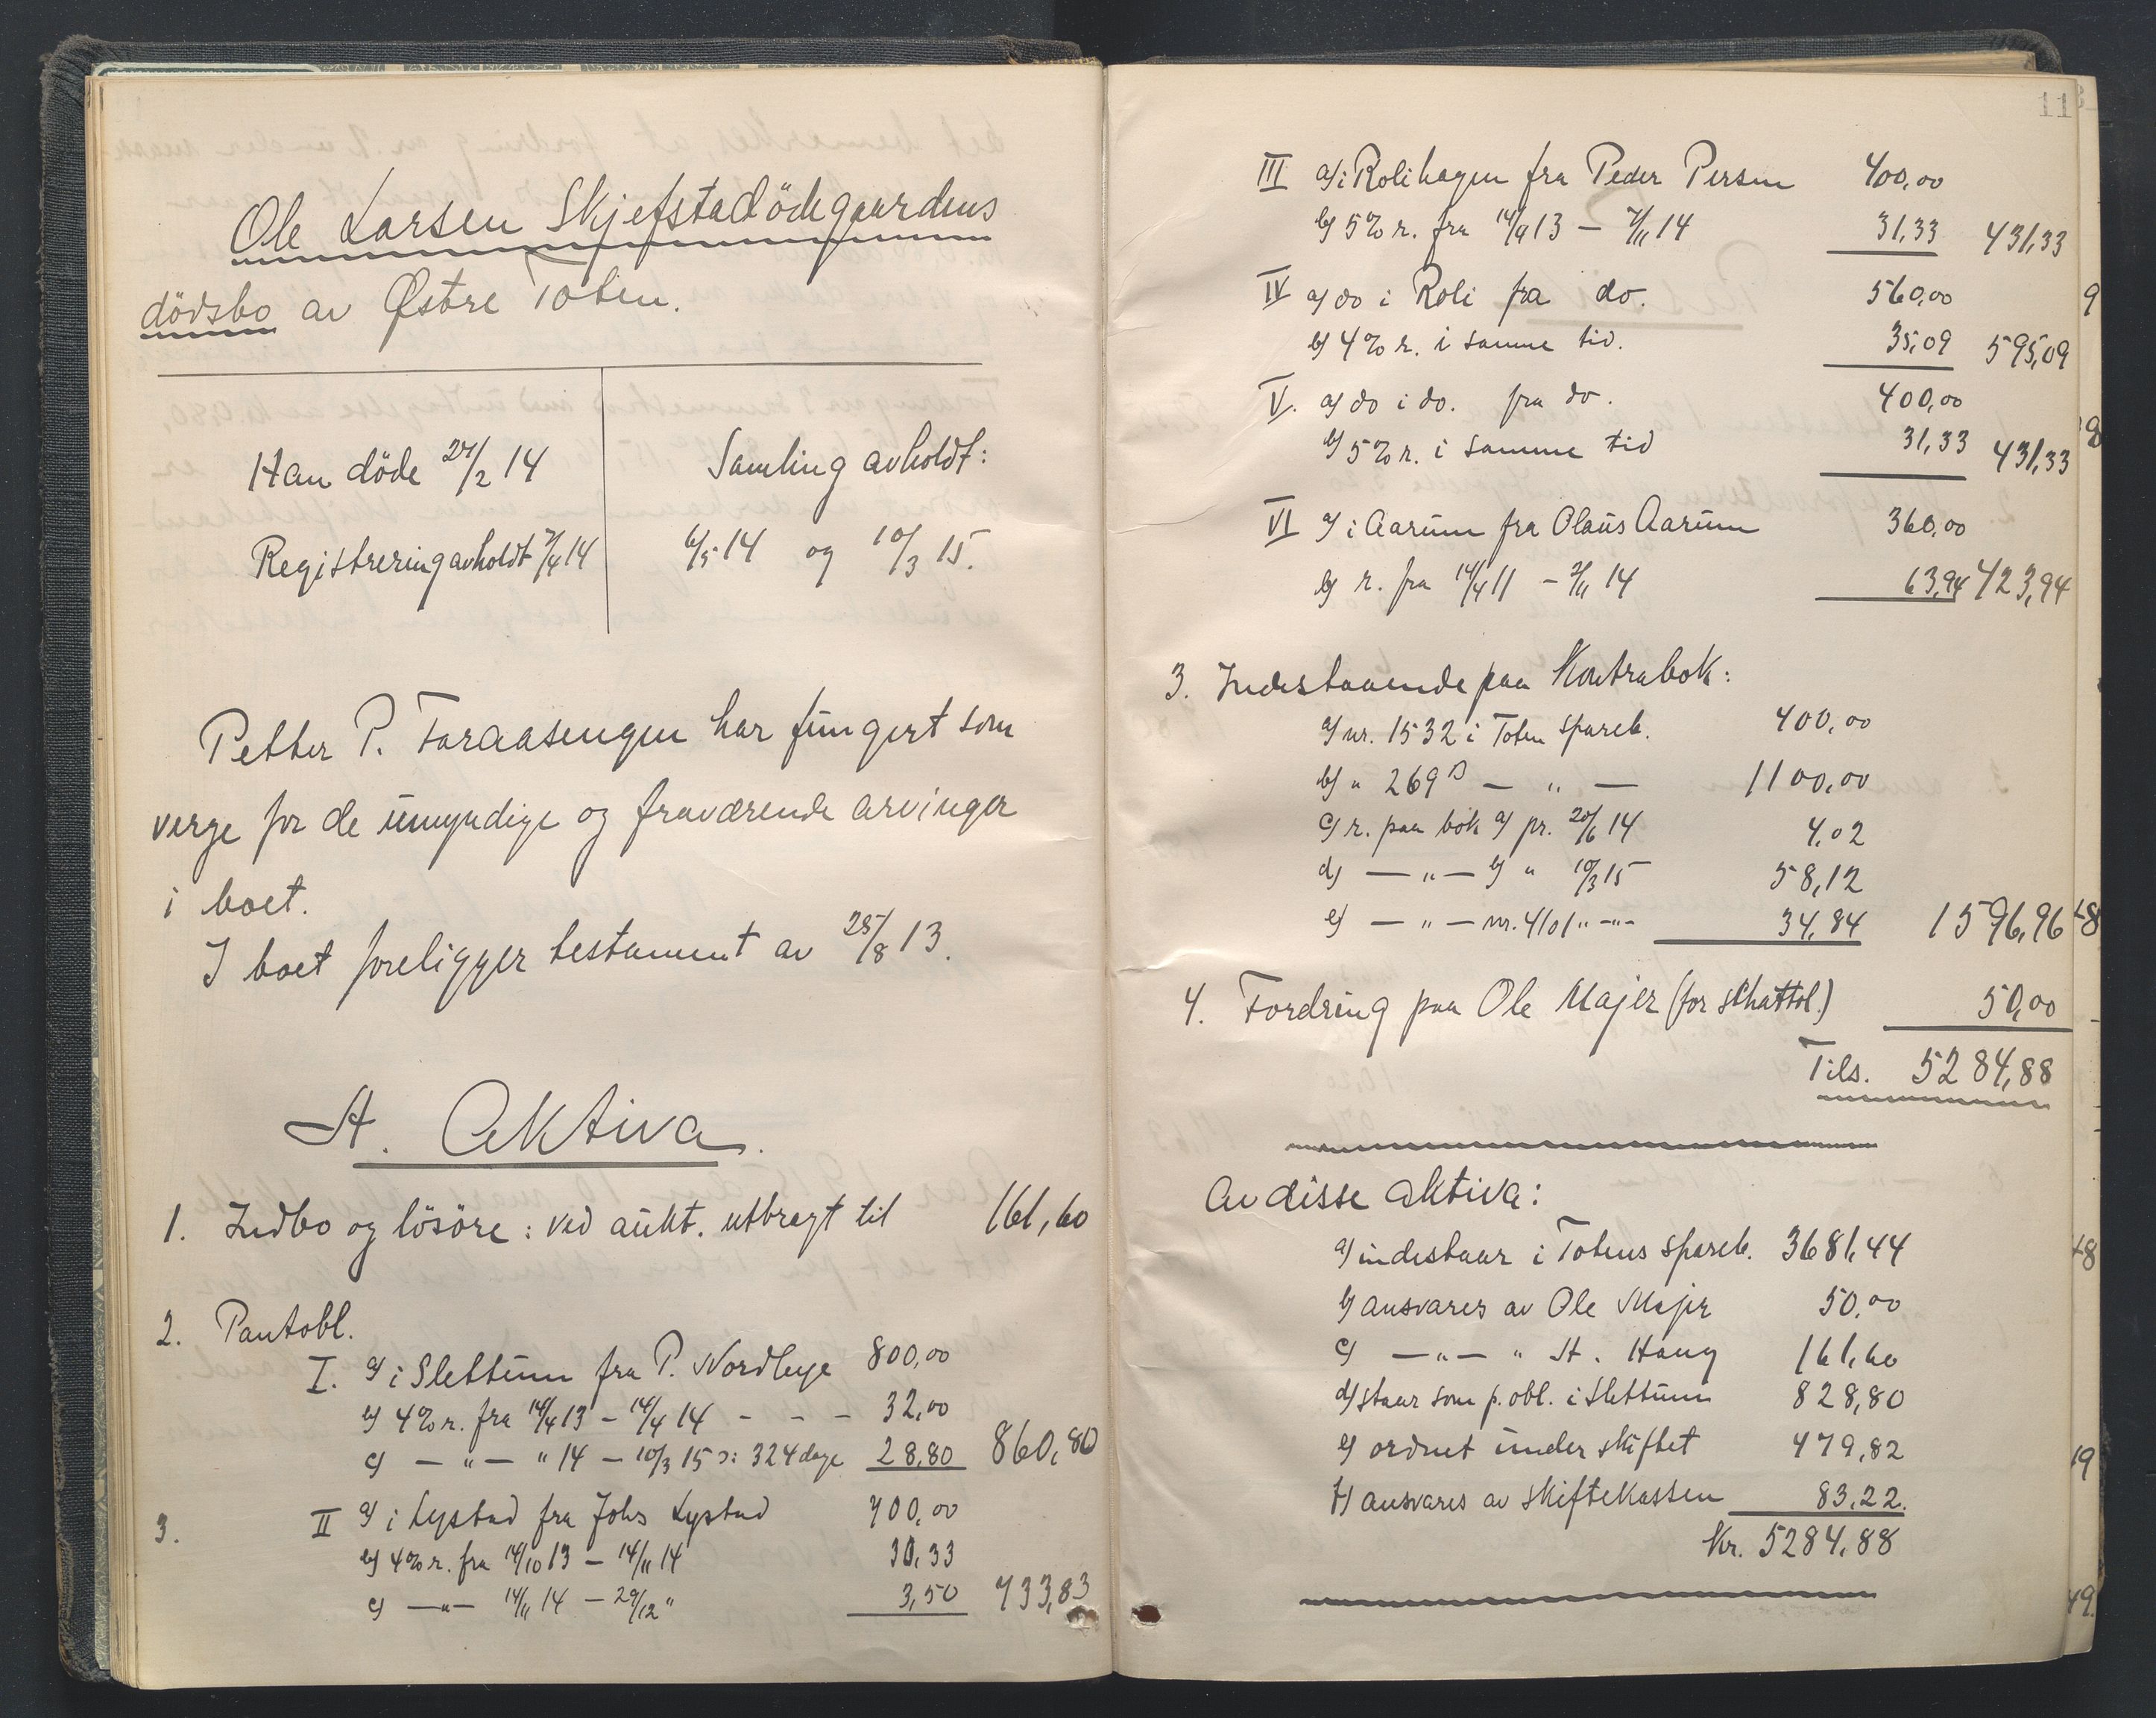 Ole Larsen Skjefstadödegaardens
dödsbo av Østre Toten.
Han döde 24/2 14
Registrering avholdt 7/4 14
Samling avholdt:
6/5 14 og 10/3 15.
Petter P. Foraasengen har fungert som
verge for de umyndige og fraværende arvinger
i boet.
I boet foreligger testament av 25/8 13.
A. Aktiva.
1. Indbo og lösöre: ved aukt. utbragt til 161,60
2. Pantobl.
I. a) i Slettum fra P. Nordlye 800,00
b) 4% r. fra 14/4 13 – 14/4 14 - - - 32,00
c) — " — " 14 – 10/3 15 ɔ: 324 dage 28,80 860,80
3. II a) i Lystad fra Johs Lystad 700,00
b) 4% r. fra 14/10 13 – 14/11 14 30,33
c) —"— 14/11 14 – 29/12 " 3,50 733,83
11
III a) i Rolihagen fra Peder Persen 400,00
b) 5% r. fra 14/4 13 – 7/11 14 31,33 431,33
IV a) do i Roli fra do. 560,00
b) 4% r. i samme tid. 35,09 595,09
V. a) do i do. fra do. 400,00
b) 5% r. i samme tid 31,33 431,33
VI a) i Aarum fra Olaus Aarum 360,00
b) r. fra 14/4 11 – 2/11 14 63,94 423,94
3. Indestaaende paa Kontrabok:
a) nr. 1532 i Toten spareb. 400,00
b) " 269 B — " — 1100,00
c) r. paa bok a) pr. 20/6 14 4,02
d) — " — b) " 10/3 15 58,12
e) — " — nr. 4101 " -"- 34,84 1596,96
4. Fordring paa Ole Majer (for skattol.) 50,00
Tils. 5284,88
Av disse aktiva:
a) indestaar i Totens spareb. 3681,44
b) ansvares av Ole Majer 50,00
c) —"— " A. Haug 161,60
d) staar som p. obl. i Slettum 828,80
e) ordnet under skiftet 479,82
f) ansvares av skiftekassen 83,22.
Kr. 5284,88